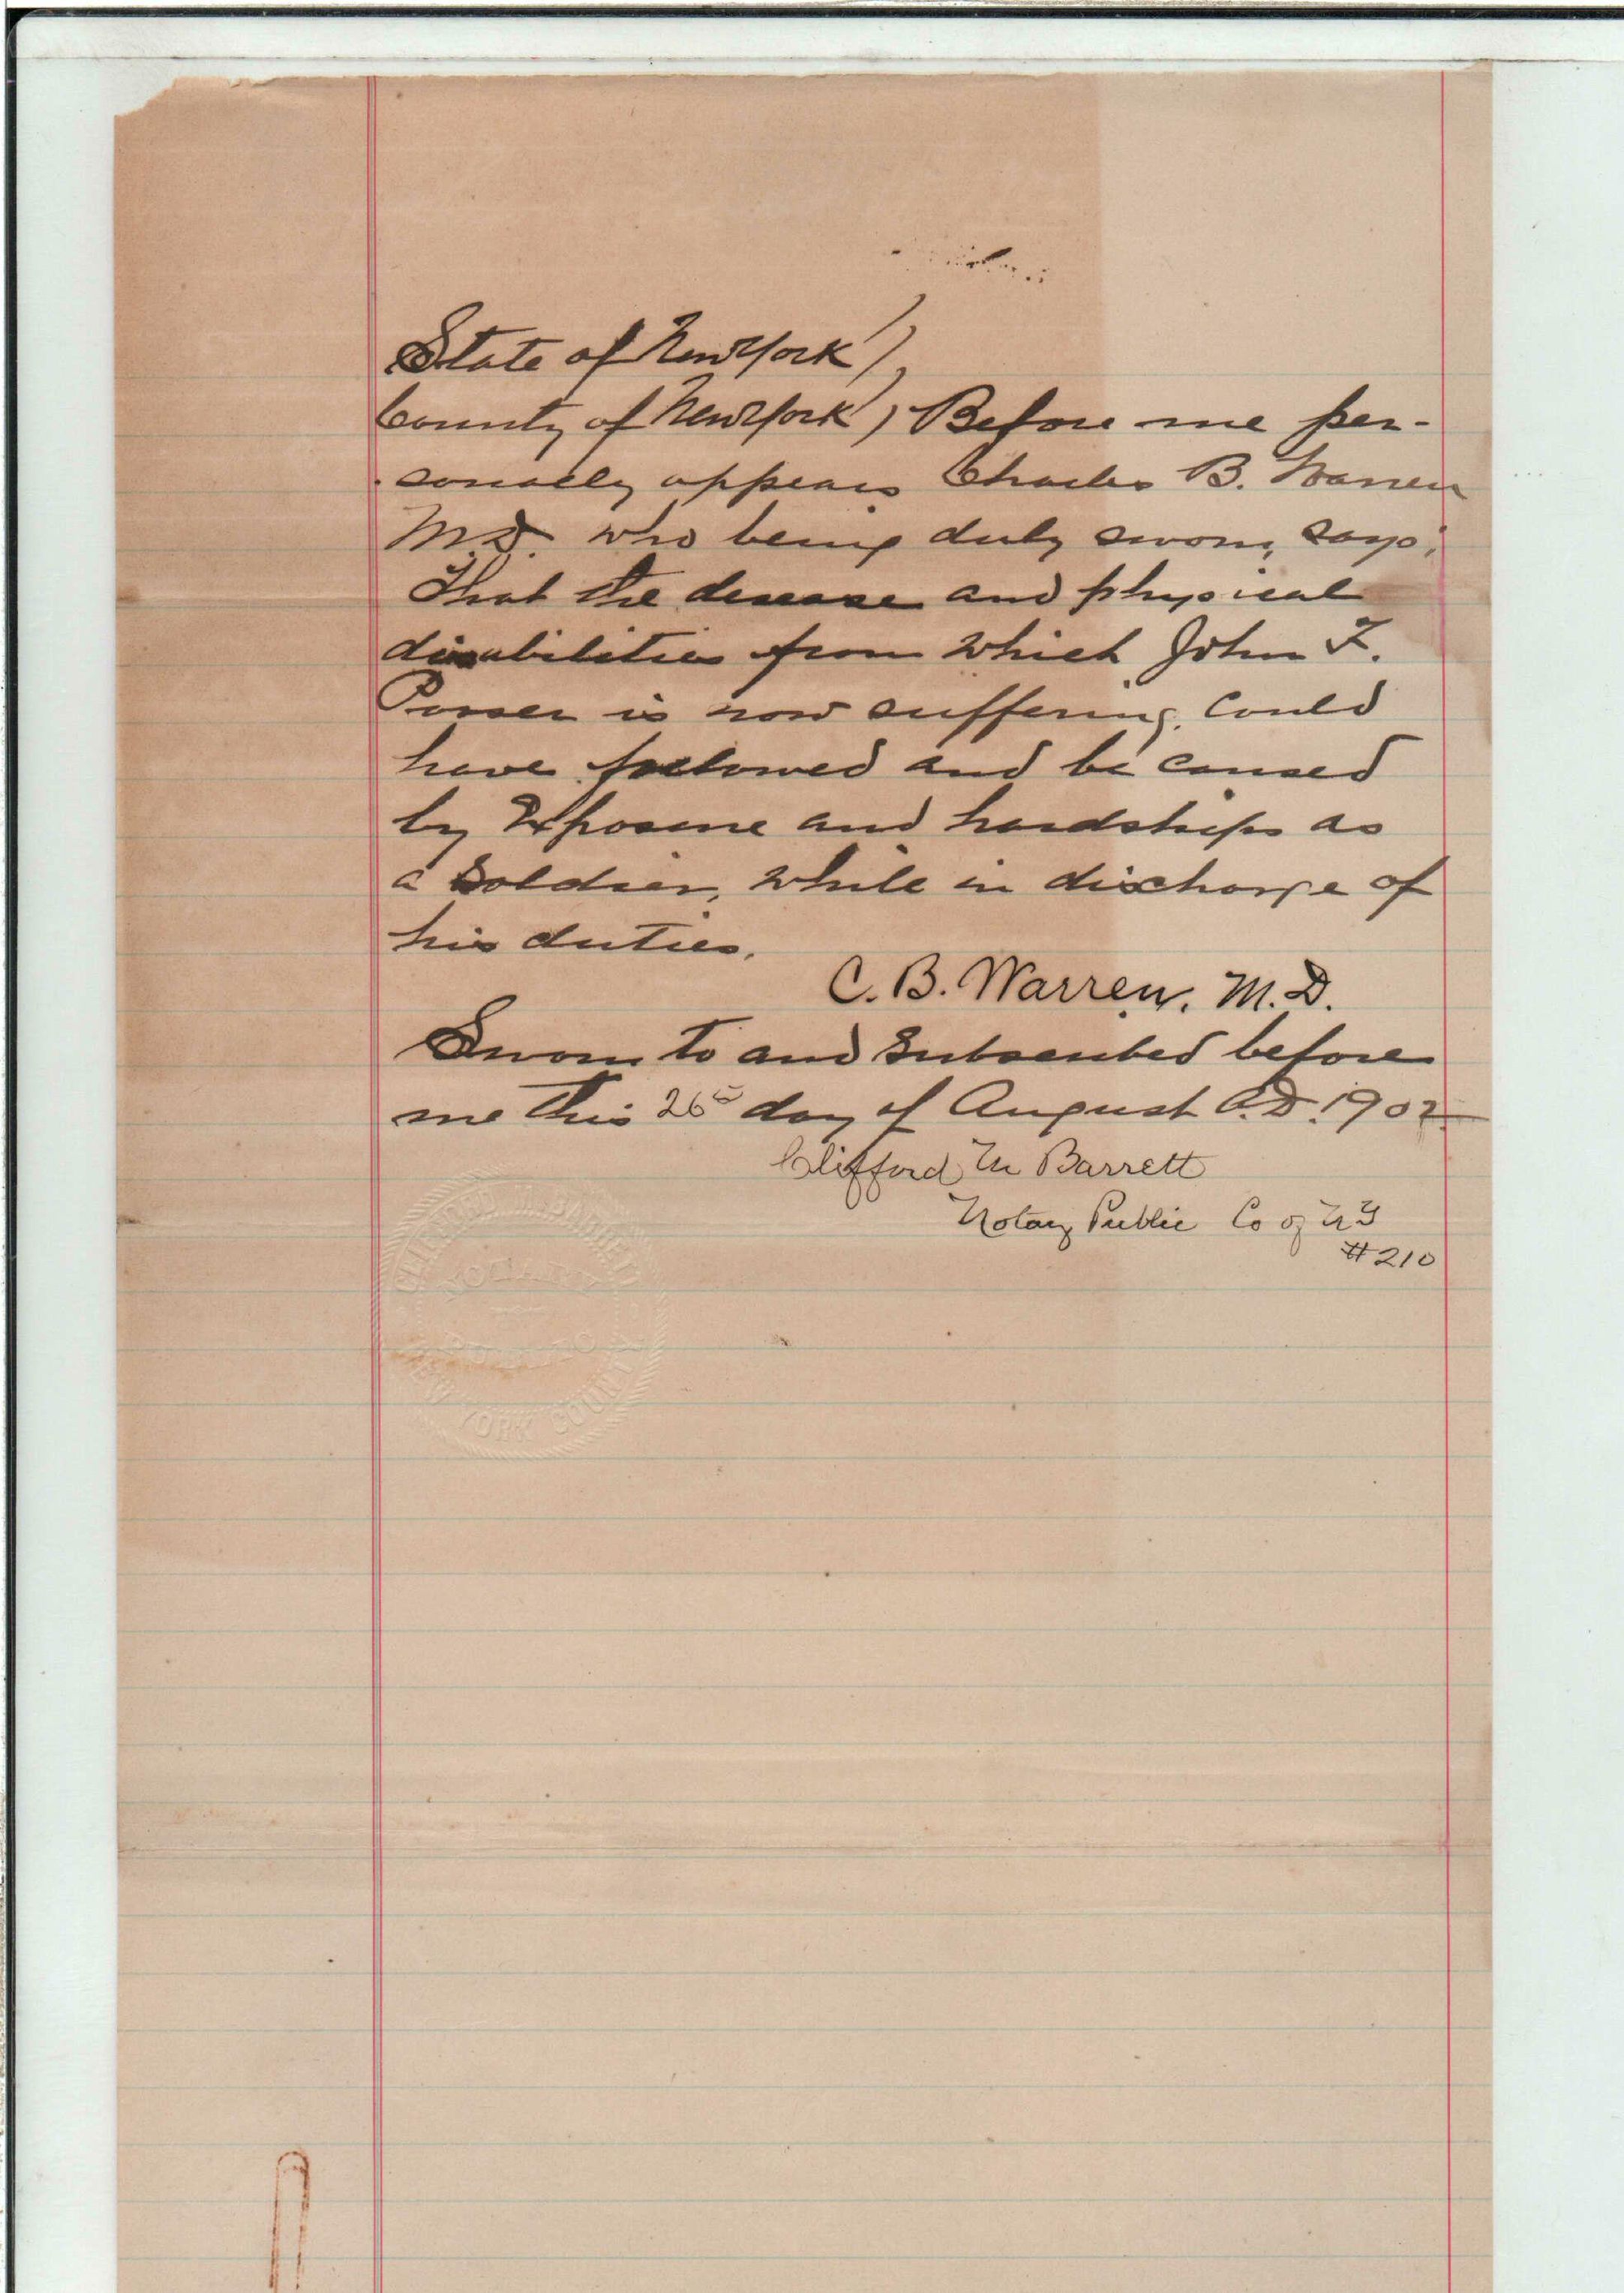 State of New York )
County of New York ) Before me per-
sonally appears Charles B. Warren
M.D. who being duly sworn, says;
That the disease and physical
disabilities from which John F.
is now suffering, Could
have followed and be caused
by Exposure and hardships as
a Soldier, while in discharge of
his duties.
C. B. Warren, M.D.
Sworn to and Subscribed before
me this 26 day of August A.D. 1902
Clifford M Barrett
Notary Public Co of NY
#210
CLIFFORD M. BARRETT
NOTARY
PUBLIC
NEW YORK COUNTY